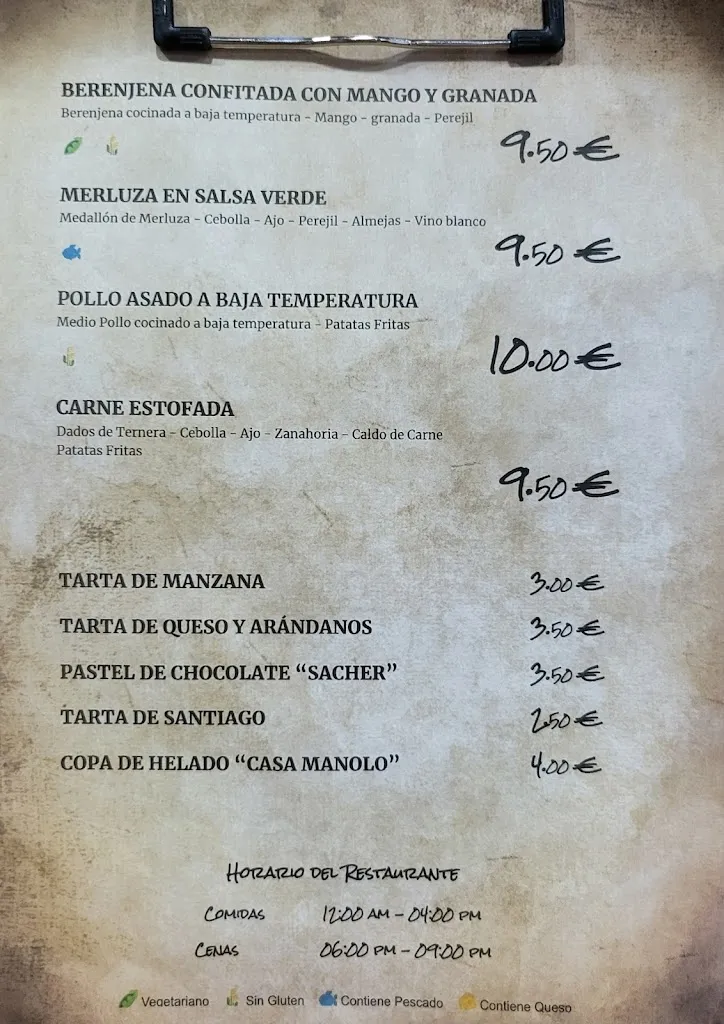 BERENJENA CONFITADA CON MANGO Y GRANADA
Berenjena cocinada a baja temperatura - Mango - granada - Perejil
9.50 €
MERLUZA EN SALSA VERDE
Medallón de Merluza - Cebolla - Ajo - Perejil - Almejas - Vino blanco
9.50 €
POLLO ASADO A BAJA TEMPERATURA
Medio Pollo cocinado a baja temperatura - Patatas Fritas
10.00 €
CARNE ESTOFADA
Dados de Ternera - Cebolla - Ajo - Zanahoria - Caldo de Carne
Patatas Fritas
9.50 €
TARTA DE MANZANA 3.00 €
TARTA DE QUESO Y ARÁNDANOS 3.50 €
PASTEL DE CHOCOLATE “SACHER” 3.50 €
TARTA DE SANTIAGO 2.50 €
COPA DE HELADO “CASA MANOLO” 4.00 €
HORARIO DEL RESTAURANTE
COMIDAS 12:00 AM - 04:00 PM
CENAS 06:00 PM - 09:00 PM
Vegetariano Sin Gluten Contiene Pescado Contiene Queso